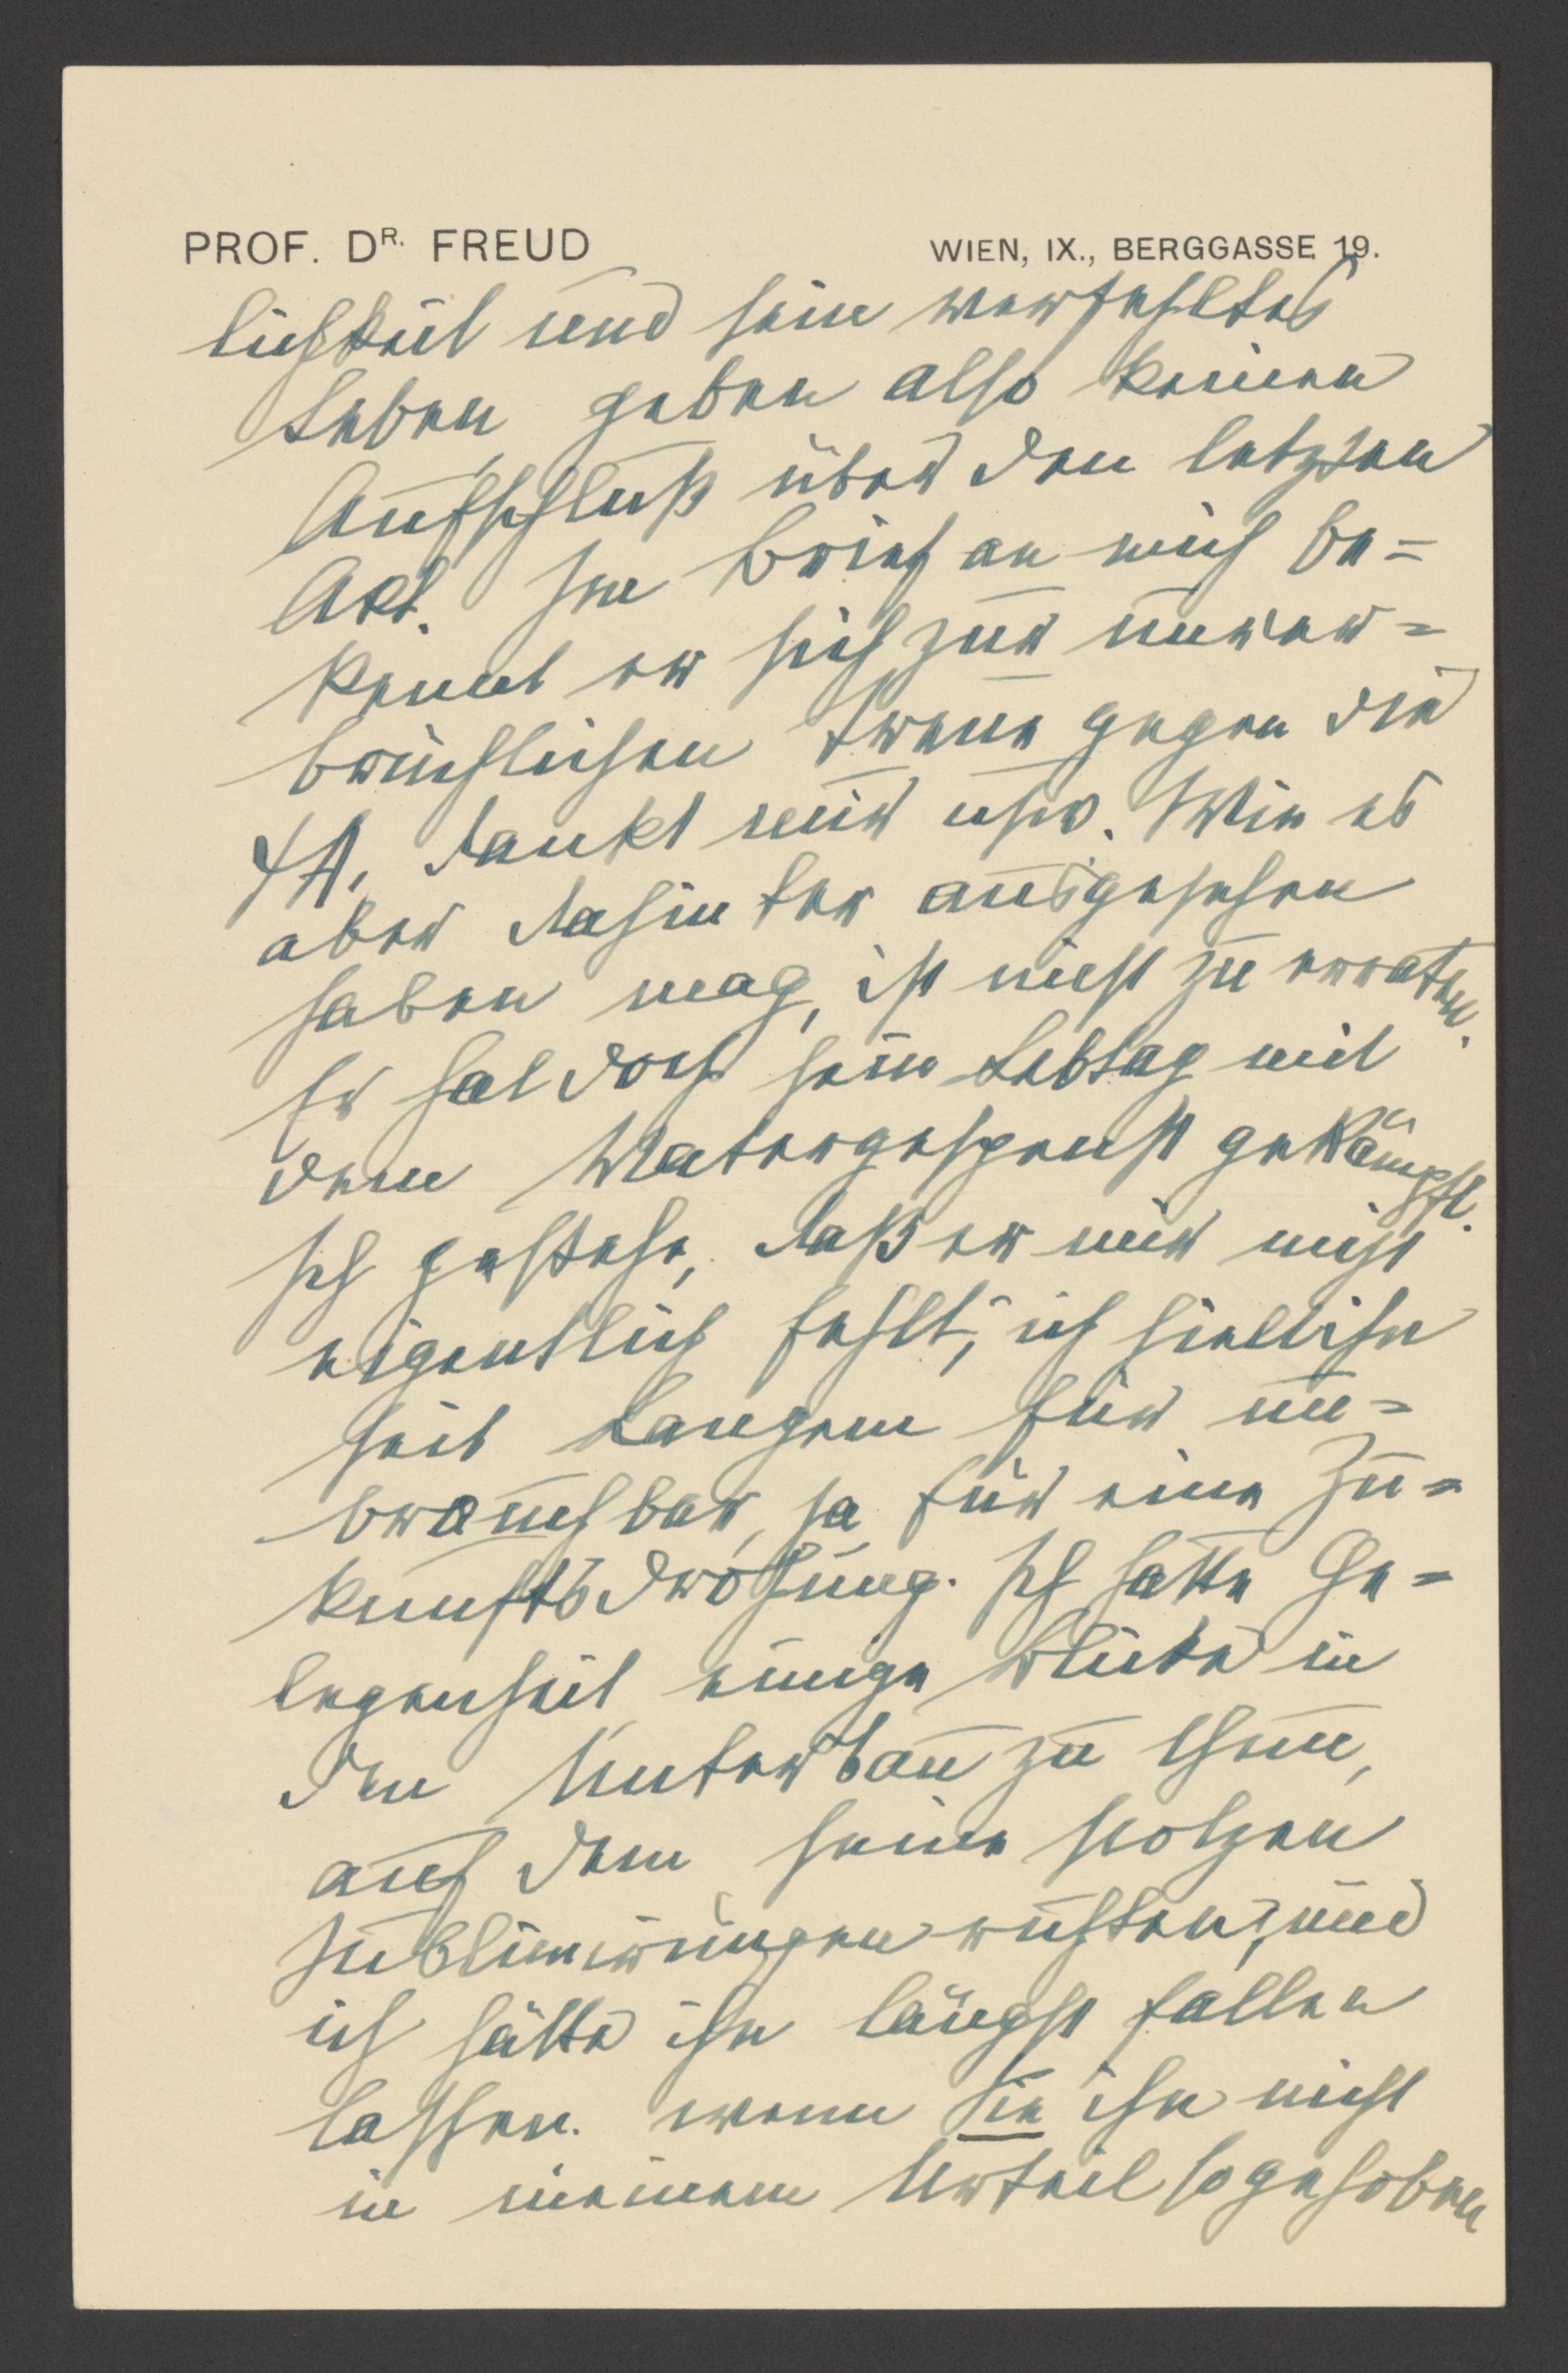 PROF. DR. FREUD WIEN, IX., BERGGASSE 19.
lichkeit und sein verfehltes
Leben geben also keinen
Aufschluß über den letzten
Akt. Im Brief an mich be=
kennt er sich zur unver=
brüchlichen Treue gegen die
ΨA, dankt mir usw. Wie es
aber dahinter ausgesehen
haben mag, ist nicht zu erraten.
Er hat doch sein Lebtag mit
dem Vatergespenst gekämpft.
Ich gestehe, daß er mir nicht
eigentlich fehlt; ich hielt ihn
seit Langem für un=
brauchbar, ja für eine Zu=
kunftsdrohung. Ich hatte Ge=
legenheit einige Blicke in
den Unterbau zu thun,
auf dem seine stolzen
Sublimirungen ruhten; und
ich hätte ihn längst fallen
lassen. wenn Sie ihn nicht
in meinem Urteil so gehoben